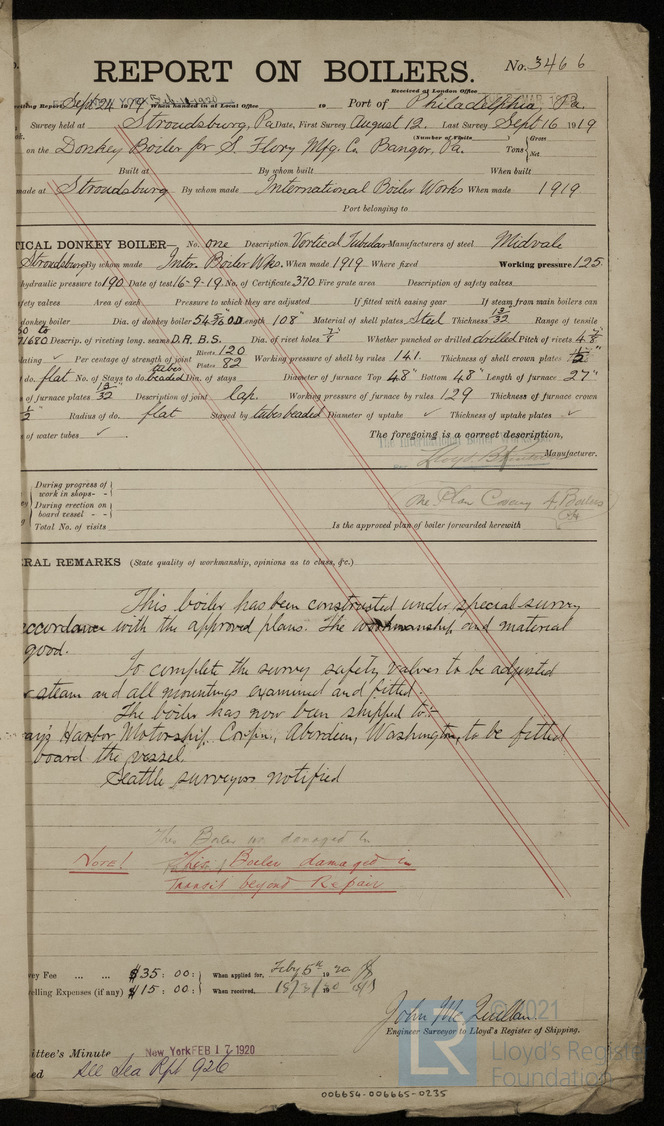 REPORT ON BOILERS.
No. 3466
Received at London Office
Sept 24 1919 When handed in at Local Office 19 Port of Philadelphia, Pa.
Survey held at Stroudsburg, Pa Date, First Survey August 12. Last Survey Sept 16 1919
(Number of Visits
Gross
on the Donkey Boiler for S. Flory Mfg. Co. Bangor, Pa. Tons
Net
Built at By whom built When built
made at Stroudsburg By whom made International Boiler Works When made 1919
Port belonging to
TICAL DONKEY BOILER— No. One Description Vertical Tubular Manufacturers of steel Midvale
Stroudsburg By whom made Inter. Boiler Wks. When made 1919 Where fixed Working pressure 125
hydraulic pressure to 190 Date of test 16-9-19 No. of Certificate 370 Fire grate area Description of safety valves
fety valves Area of each Pressure to which they are adjusted If fitted with easing gear If steam from main boilers can
donkey boiler Dia. of donkey boiler 54 5/16" O.D. Length 108" Material of shell plates Steel Thickness 13/32 Range of tensile
71680 Descrip. of riveting long. seams D.R.B.S. Dia. of rivet holes 7/8" Whether punched or drilled drilled Pitch of rivets 4 7/8"
ating ✓ Per centage of strength of joint Rivets 120 Plates 82 Working pressure of shell by rules 141. Thickness of shell crown plates 1/2"
do. flat No. of Stays to do. tubes beaded Dia. of stays Diameter of furnace Top 48" Bottom 48" Length of furnace 27"
s of furnace plates 13/32" Description of joint lap. Working pressure of furnace by rules 129 Thickness of furnace crown
1/2" Radius of do. flat Stayed by tubes beaded Diameter of uptake ✓ Thickness of uptake plates ✓
s of water tubes ✓
The foregoing is a correct description,
Manufacturer.
During progress of work in shops - -
During erection on board vessel - - -
Total No. of visits
One Plan Covering 4 Boilers
Is the approved plan of boiler forwarded herewith
ERAL REMARKS (State quality of workmanship, opinions as to class, &c.)
This boiler has been constructed under special survey
ccordance with the approved plans. The workmanship and material
good.
To complete the survey safety valves to be adjusted
r steam and all mountings examined and fitted.
The boiler has now been shipped to:-
ay's Harbor Motorship. Corp'n, Aberdeen, Washington, to be fitted
board the vessel.
Seattle surveyors notified
This Boiler damaged in
NOTE! This Boiler damaged in
Transit beyond Repair
vey Fee ... ... $35 : 00 : When applied for, Feby 5th 1920
velling Expenses (if any) $15 : 00 : When received, 18/3/20
John McQuillan.
Engineer Surveyor to Lloyd's Register of Shipping.
ittee's Minute New York FEB 17 1920
ed See Sea Rpt 926
© 2021
LR
Lloyd's Register
Foundation
006654-006665-0235